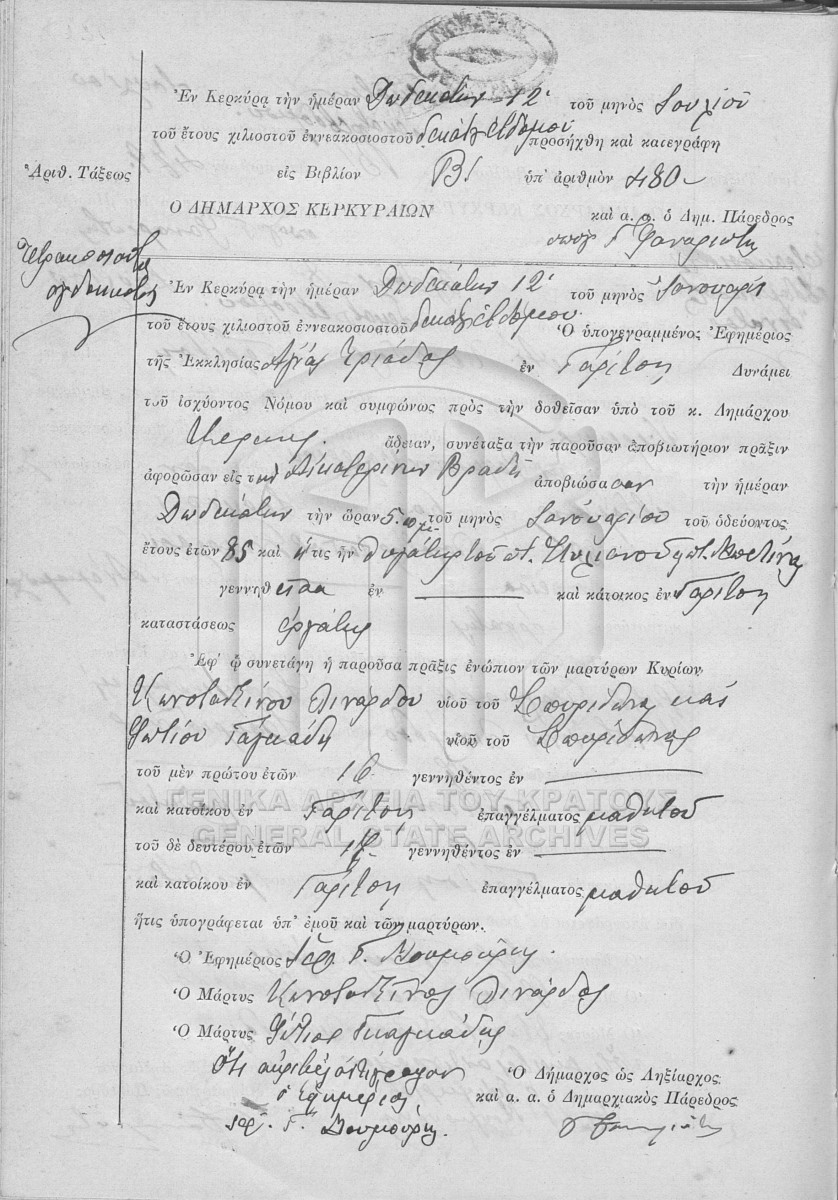 Ἐν Κερκύρᾳ τὴν ἡμέραν Δωδεκάτην 12 τοῦ μηνὸς Ἰουλίου
τοῦ ἔτους χιλιοστοῦ ἐννεακοσιοστοῦ δεκάτου ἑβδόμου προσήχθη καὶ κατεγράφη
Ἀριθ. Τάξεως
εἰς Βιβλίον Β! ὑπ' ἀριθμὸν 480
Ο ΔΗΜΑΡΧΟΣ ΚΕΡΚΥΡΑΙΩΝ
καὶ α. α. ὁ Δημ. Πάρεδρος
Γ Φαναριώτης
Ἐν Κερκύρᾳ τὴν ἡμέραν Δωδεκάτην 12 τοῦ μηνὸς Ἰανουαρίου
τοῦ ἔτους χιλιοστοῦ ἐννεακοσιοστοῦ δεκάτου ἑβδόμου. Ὁ ὑπογεγραμμένος Ἐφημέριος
τῆς Ἐκκλησίας Ἁγίας Τριάδος ἐν Γαρίτσῃ Δυνάμει
τοῦ ἰσχύοντος Νόμου καὶ συμφώνως πρὸς τὴν δοθεῖσαν ὑπὸ τοῦ κ. Δημάρχου
ἄδειαν, συνέταξα τὴν παροῦσαν ἀποβιωτήριον πρᾶξιν
ἀφορῶσαν εἰς τὴν Αἰκατερίνην Βραδῆ ἀποβιώσασαν τὴν ἡμέραν
Δωδεκάτην τὴν ὥραν 5 τοῦ μηνὸς Ἰανουαρίου τοῦ ὁδεύοντος
ἔτους ἐτῶν 85 καὶ ἥτις ἦν θυγάτηρ τοῦ
γεννηθεῖσα ἐν καὶ κάτοικος ἐν Γαρίτσῃ
καταστάσεως ἐργάτις
Ἐφ' ᾧ συνετάγη ἡ παροῦσα πρᾶξις ἐνώπιον τῶν μαρτύρων Κυρίων
Κωνσταντίνου Λινάρδου υἱοῦ τοῦ Σπυρίδωνος καὶ
Φωτίου Γαγκάδη υἱοῦ τοῦ Σπυρίδωνος
τοῦ μὲν πρώτου ἐτῶν γεννηθέντος ἐν
ΓΕΝΙΚΑ ΑΡΧΕΙΑ ΤΟΥ ΚΡΑΤΟΥΣ
καὶ κατοίκου ἐν Γαρίτσῃ ἐπαγγέλματος μαθητοῦ
GENERAL STATE ARCHIVES
τοῦ δὲ δευτέρου ἐτῶν γεννηθέντος ἐν
καὶ κατοίκου ἐν Γαρίτσῃ ἐπαγγέλματος μαθητοῦ
ἥτις ὑπογράφεται ὑπ' ἐμοῦ καὶ τῶν μαρτύρων.
Ὁ Ἐφημέριος Ἱερ. Γ. Βουμούρης
Ὁ Μάρτυς Κωνσταντῖνος Λινάρδος
Ὁ Μάρτυς Φώτιος Γκαγκάδης
Ὅτι ἀκριβὲς ἀντίγραφον
Ὁ Δήμαρχος ὡς Ληξίαρχος
ὁ Ἐφημέριος
καὶ α. α. ὁ Δημαρχιακὸς Πάρεδρος
Ἱερ. Γ. Βουμούρης